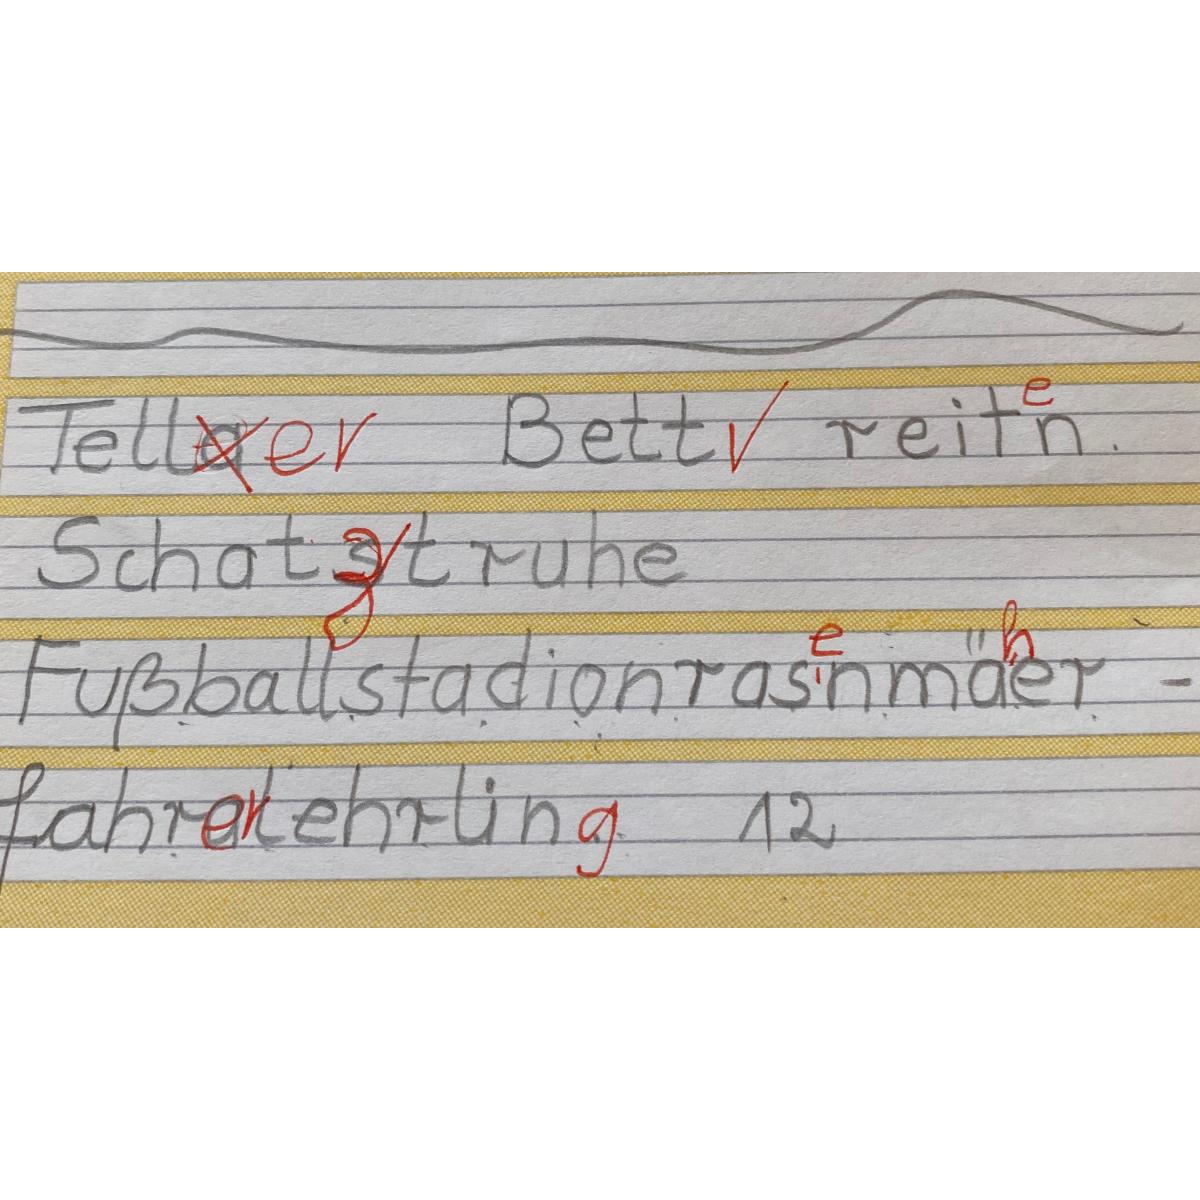 Teller Bett✓ reiten.
Schatztruhe
Fußballstadionrasenmäher-
fahrerlehrling 12